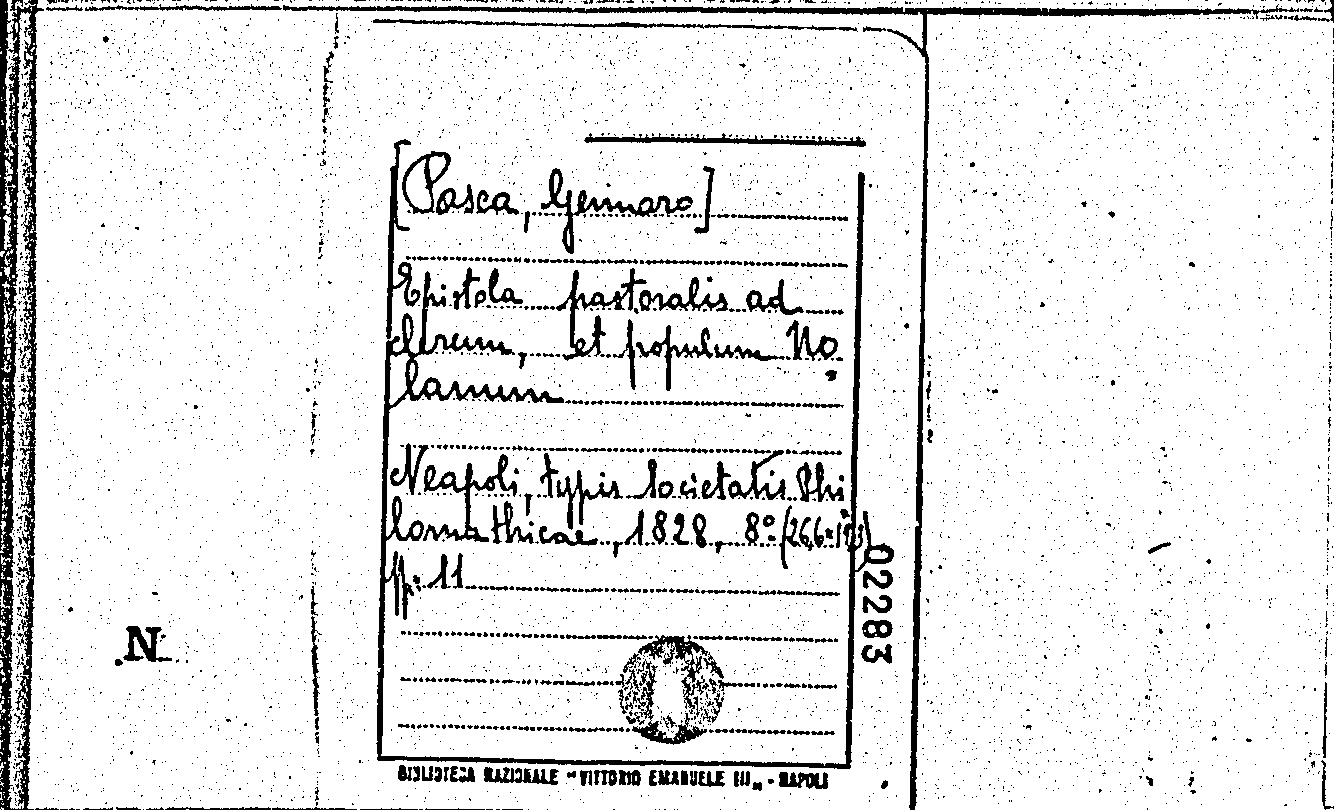 [Pasca, Gennaro]
Epistola pastoralis ad
clerum, et populum No
lanum
Neapoli, typis Societatis Phi
lomathicae, 1828, 8º
pp. 11
02283
N.
BIBLIOTECA NAZIONALE "VITTORIO EMANUELE III" - NAPOLI